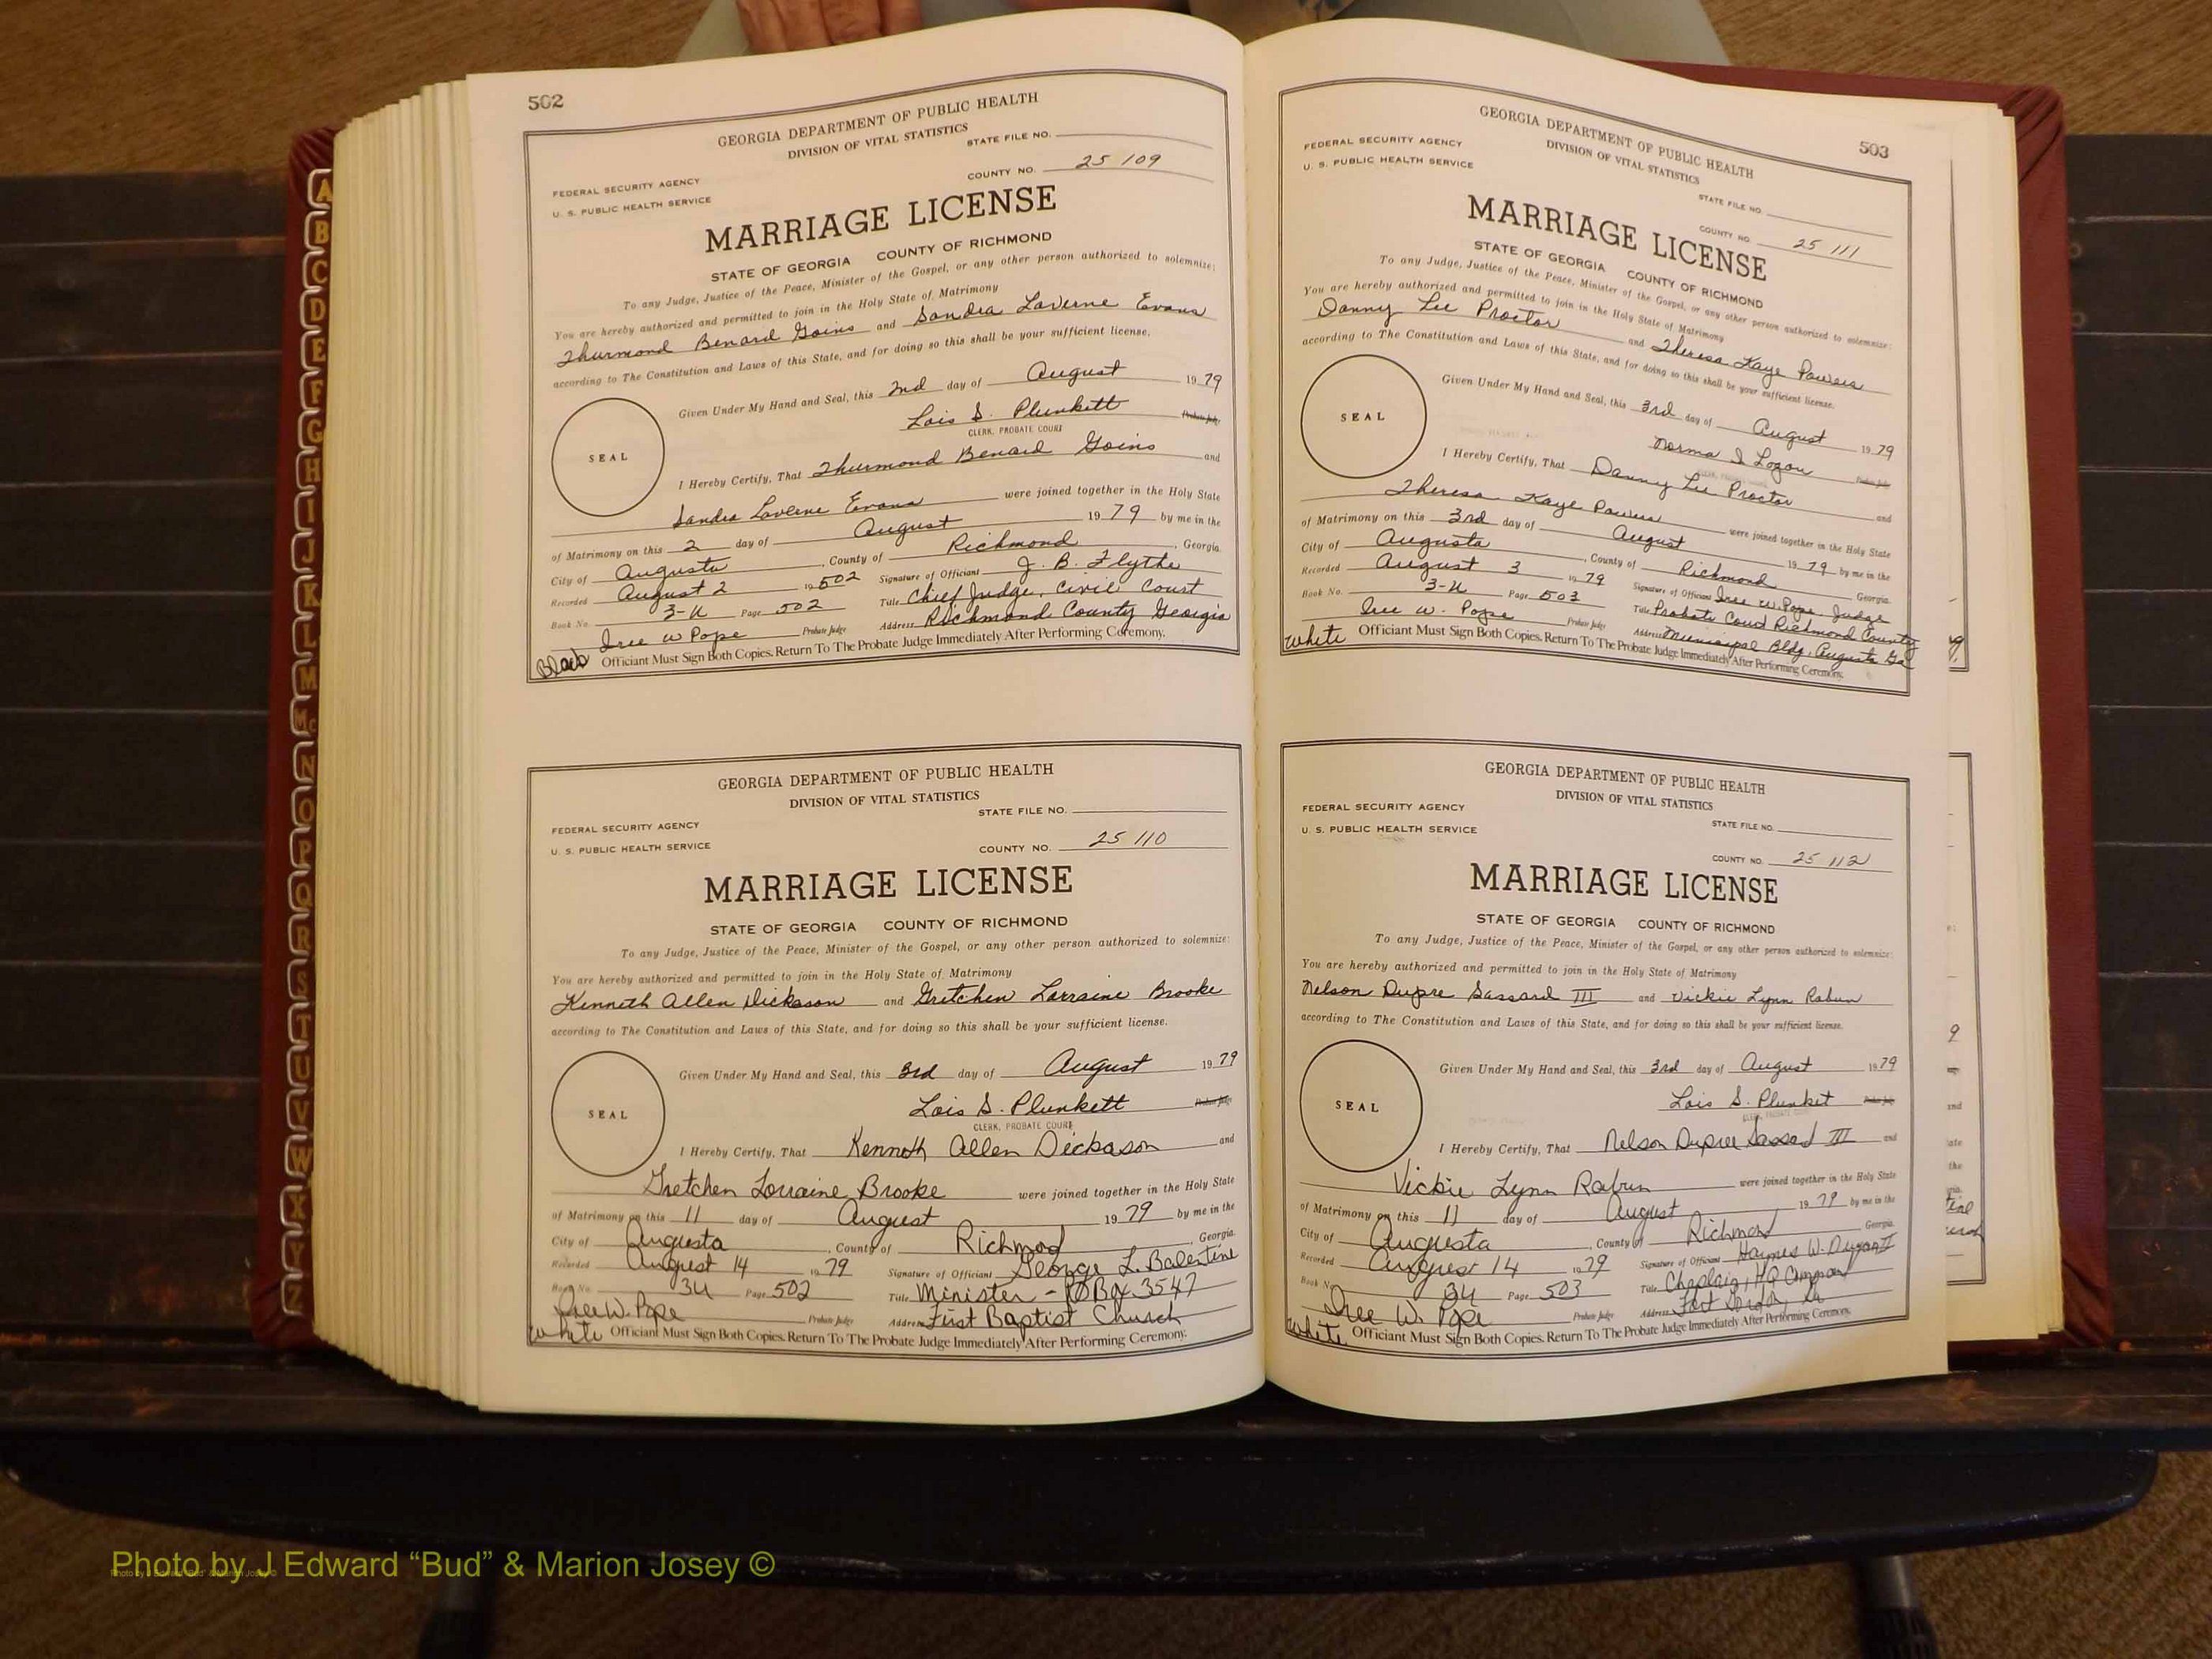 502
GEORGIA DEPARTMENT OF PUBLIC HEALTH
DIVISION OF VITAL STATISTICS
STATE FILE NO.
COUNTY NO. 25 109
FEDERAL SECURITY AGENCY
U. S. PUBLIC HEALTH SERVICE
MARRIAGE LICENSE
STATE OF GEORGIA COUNTY OF RICHMOND
To any Judge, Justice of the Peace, Minister of the Gospel, or any other person authorized to solemnize:
You are hereby authorized and permitted to join in the Holy State of Matrimony
Thurmond Benard Goins and Sandra Laverne Evans
according to The Constitution and Laws of this State, and for doing so this shall be your sufficient license.
Given Under My Hand and Seal, this 2nd day of August 1979
Lois S. Plunkett Probate Judge
CLERK, PROBATE COURT
SEAL
I Hereby Certify, That Thurmond Benard Goins and
Sandra Laverne Evans were joined together in the Holy State
of Matrimony on this 2 day of August 1979 by me in the
City of Augusta, County of Richmond, Georgia.
Recorded August 2 19502 Signature of Officiant J. B. Flythe
Book No. 3-U Page 502 Title Chief Judge, Civil Court
Iree W Pope Probate Judge Address Richmond County Georgia
Black Officiant Must Sign Both Copies. Return To The Probate Judge Immediately After Performing Ceremony.
GEORGIA DEPARTMENT OF PUBLIC HEALTH
DIVISION OF VITAL STATISTICS
STATE FILE NO.
FEDERAL SECURITY AGENCY
U. S. PUBLIC HEALTH SERVICE
COUNTY NO. 25 110
MARRIAGE LICENSE
STATE OF GEORGIA COUNTY OF RICHMOND
To any Judge, Justice of the Peace, Minister of the Gospel, or any other person authorized to solemnize:
You are hereby authorized and permitted to join in the Holy State of Matrimony
Kenneth Allen Dickason and Gretchen Lorraine Brooke
according to The Constitution and Laws of this State, and for doing so this shall be your sufficient license.
Given Under My Hand and Seal, this 3rd day of August 1979
Lois S. Plunkett Probate Judge
CLERK, PROBATE COURT
SEAL
I Hereby Certify, That Kenneth Allen Dickason and
Gretchen Lorraine Brooke were joined together in the Holy State
of Matrimony on this 11 day of August 1979 by me in the
City of Augusta, County of Richmod, Georgia.
Recorded August 14 1979 Signature of Officiant George L. Balentine
Book No. 3U Page 502 Title Minister - PO Box 3547
Iree W. Pope Probate Judge Address First Baptist Church
White Officiant Must Sign Both Copies. Return To The Probate Judge Immediately After Performing Ceremony.
503
GEORGIA DEPARTMENT OF PUBLIC HEALTH
DIVISION OF VITAL STATISTICS
FEDERAL SECURITY AGENCY
U. S. PUBLIC HEALTH SERVICE
STATE FILE NO.
COUNTY NO. 25 111
MARRIAGE LICENSE
STATE OF GEORGIA COUNTY OF RICHMOND
To any Judge, Justice of the Peace, Minister of the Gospel, or any other person authorized to solemnize:
You are hereby authorized and permitted to join in the Holy State of Matrimony
Danny Lee Proctor and Theresa Kaye Powers
according to The Constitution and Laws of this State, and for doing so this shall be your sufficient license.
Given Under My Hand and Seal, this 3rd day of August 1979
Norma I Logan Probate Judge
SEAL
I Hereby Certify, That Danny Lee Proctor and
Theresa Kaye Powers were joined together in the Holy State
of Matrimony on this 3rd day of August 1979 by me in the
City of Augusta, County of Richmond Georgia.
Recorded August 3 1979 Signature of Officiant Iree W. Pope, Judge
Book No. 3-U Page 503 Title Probate Court Richmond County
Iree W. Pope Probate Judge Address Municipal Bldg, Augusta Ga
White Officiant Must Sign Both Copies. Return To The Probate Judge Immediately After Performing Ceremony.
GEORGIA DEPARTMENT OF PUBLIC HEALTH
DIVISION OF VITAL STATISTICS
FEDERAL SECURITY AGENCY
U. S. PUBLIC HEALTH SERVICE
STATE FILE NO.
COUNTY NO. 25 112
MARRIAGE LICENSE
STATE OF GEORGIA COUNTY OF RICHMOND
To any Judge, Justice of the Peace, Minister of the Gospel, or any other person authorized to solemnize:
You are hereby authorized and permitted to join in the Holy State of Matrimony
Nelson Dupre Sassard III and Vickie Lynn Rabun
according to The Constitution and Laws of this State, and for doing so this shall be your sufficient license.
Given Under My Hand and Seal, this 3rd day of August 1979
Lois S. Plunket Probate Judge
CLERK, PROBATE COURT
SEAL
I Hereby Certify, That Nelson Dupree Sassard III and
Vickie Lynn Rabun were joined together in the Holy State
of Matrimony on this 11 day of August 1979 by me in the
City of Augusta, County of Richmond Georgia.
Recorded August 14 1979 Signature of Officiant Haynes W.
Book No. 3U Page 503 Title Chaplain, HQ Command
Iree W. Pope Probate Judge Address Fort Gordon, Ga
White Officiant Must Sign Both Copies. Return To The Probate Judge Immediately After Performing Ceremony.
A
B
C
D
E
F
G
H
I
J
K
L
M
Mc
N
O
P
Q
R
S
T
U
V
W
X
Y
Z
Photo by J Edward “Bud” & Marion Josey ©